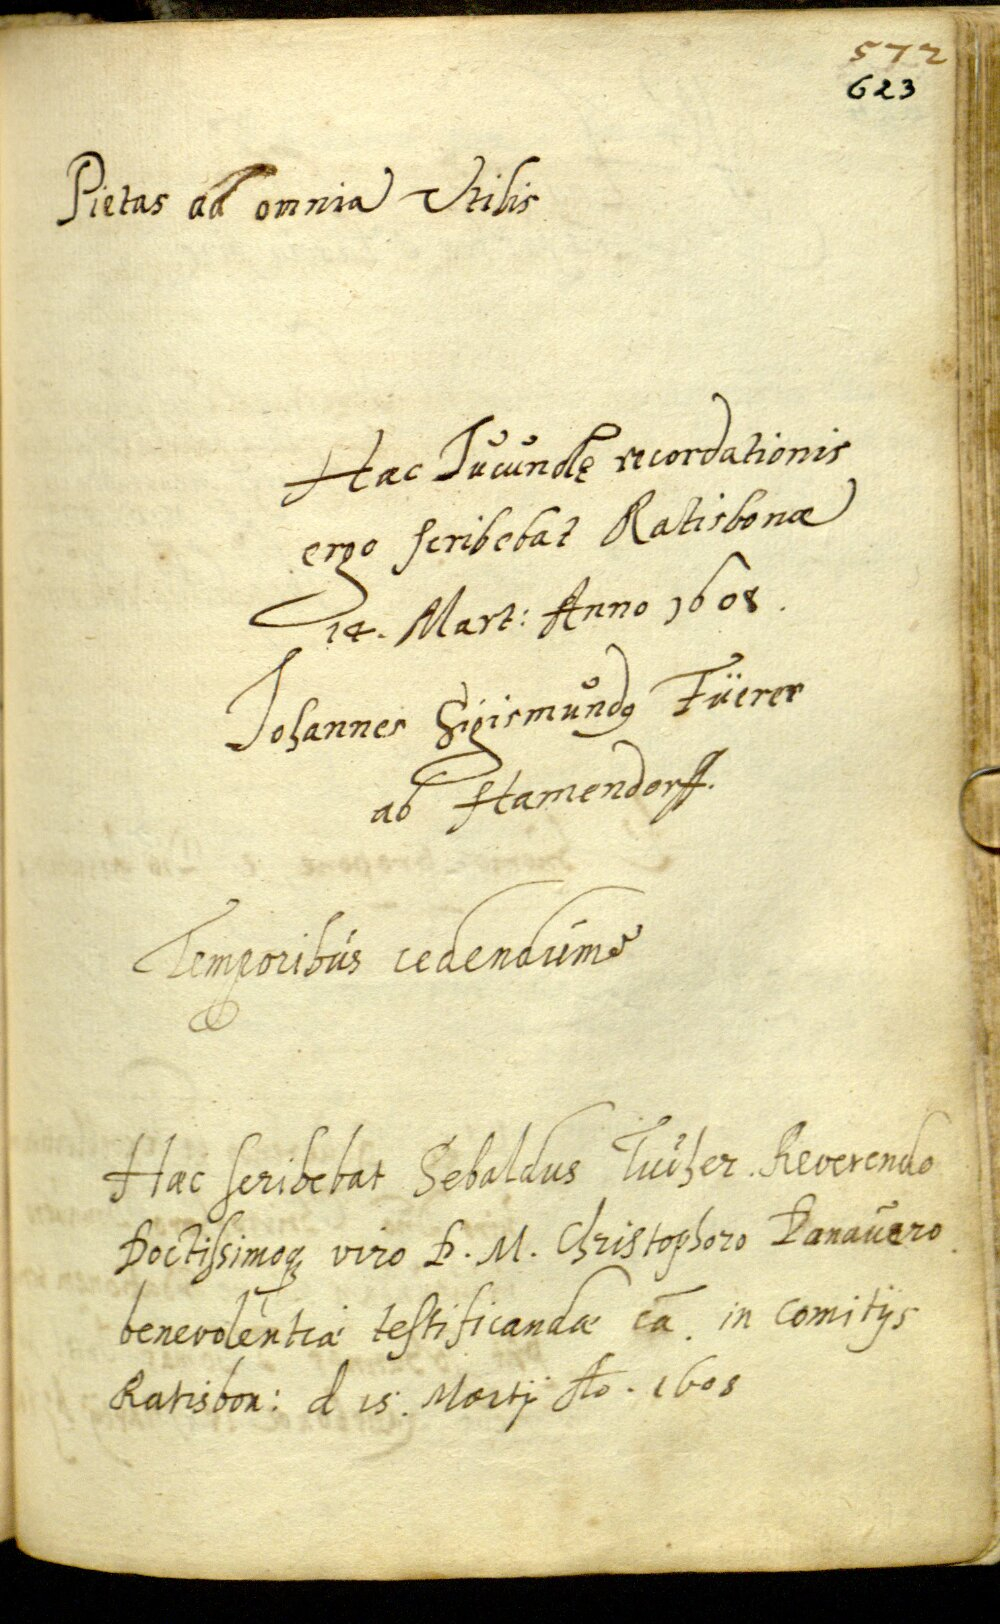 572
623
Pietas ad omnia Utilis
Haec Jucundę recordationis
ergo scribebat Ratisbonae
14. Mart: Anno 1608.
Johannes Sigismundꝯ Füerer
ab Hamendorff.
Temporibus cedendum
Haec scribebat Sebaldus Tucher. Reverendo
Doctissimoqꝫ viro D. M. Christophoro Donauero.
benevolentiae testificandae cā. in comitijs
Ratisbon: d 15. Martij Ao. 1608